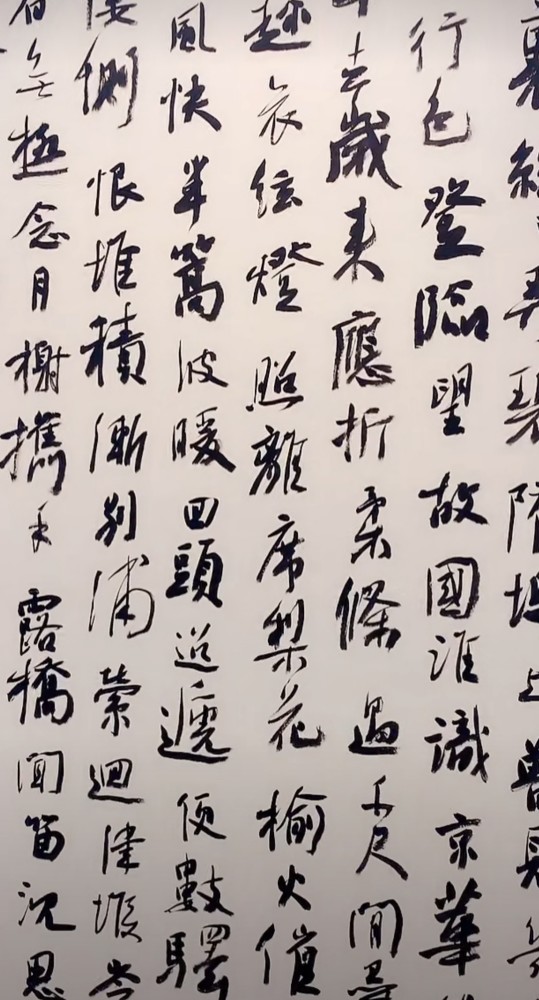 裏絲弄碧隋堤上曾見
行色登臨望故國誰識京華
去歲來應折柔條過千尺閒尋
趁哀絃燈照離席梨花榆火催
風快半篙波暖回頭迢遞便數驛
悽惻恨堆積漸別浦縈迴津堠岑
無極念月榭攜手露橋聞笛沉思